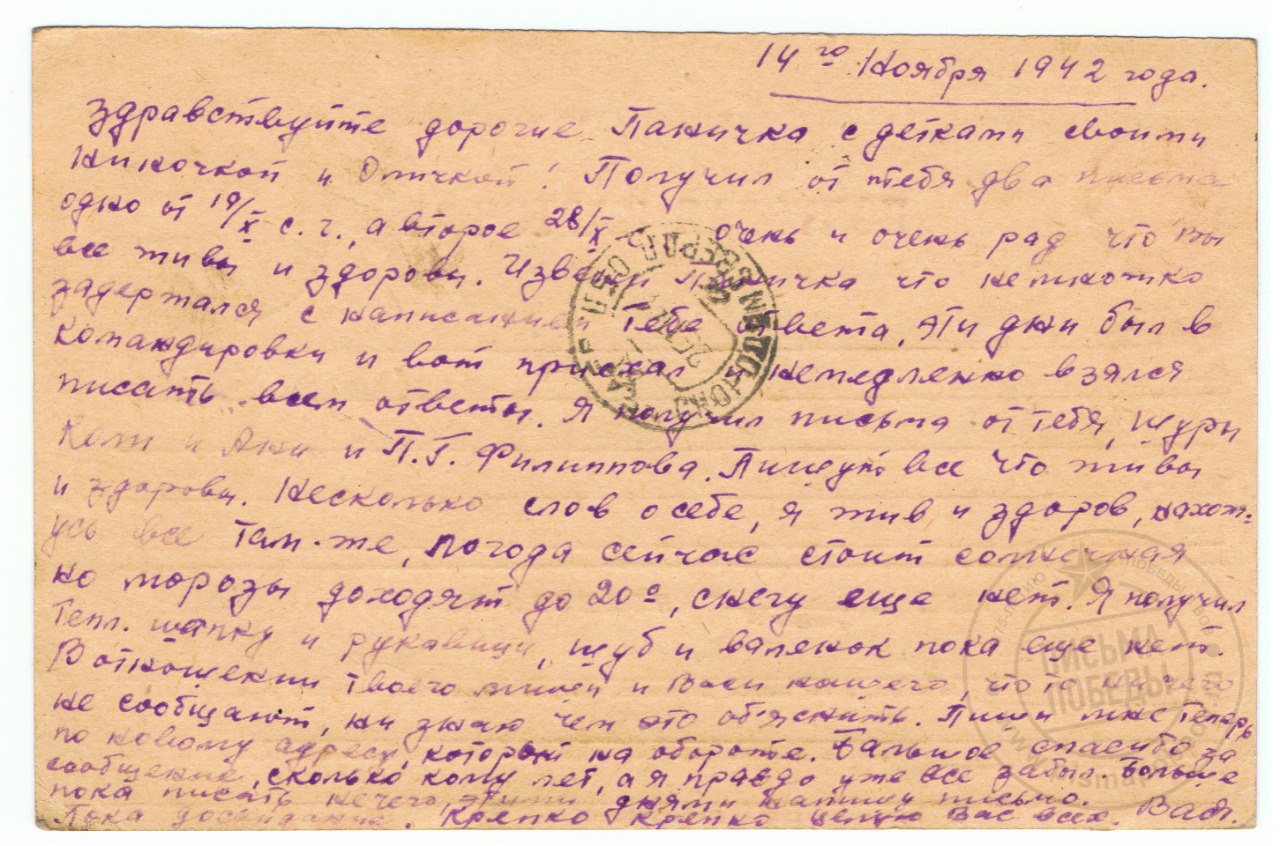 14го Ноября 1942 года.
Здравствуйте дорогие Паничка с детками своими
Ниночкой и Оличкой! Получил от тебя два письма
одно от 19/X с.г., а второе 28/X с.г. очень и очень рад что вы
все живы и здоровы. Извени Паничка что немножко
задержался с написанием тебе ответа, эти дни был в
командировки и вот приехал и немедленно взялся
писать всем ответы. Я получил письма от тебя, Шуры
Коли и Ани и П.Г. Филиппова. Пишут все что живы
и здоровы. Несколько слов о себе, я жив и здоров, нахож-
усь все там-же, погода сейчас стоит солнечная
но морозы доходят до 20º, снегу еще нет. Я получил
Тепл. шапку и рукавицы, шуб и валенок пока еще нет.
В отношении твоего миши и Васи нашего, что то ничего
не сообщают, ни знаю чем это об'яснить. Пиши мне теперь
по новому адресу, который на обороте. Бальшое спасибо за
сообщение, сколько кому лет, а я правдо уже все забыл. Больше
пока писать нечего, этими днями напишу письмо.
Пока досвидание. Крепко крепко целую Вас всех.
ПИСЬМА
ПОБЕДЫ